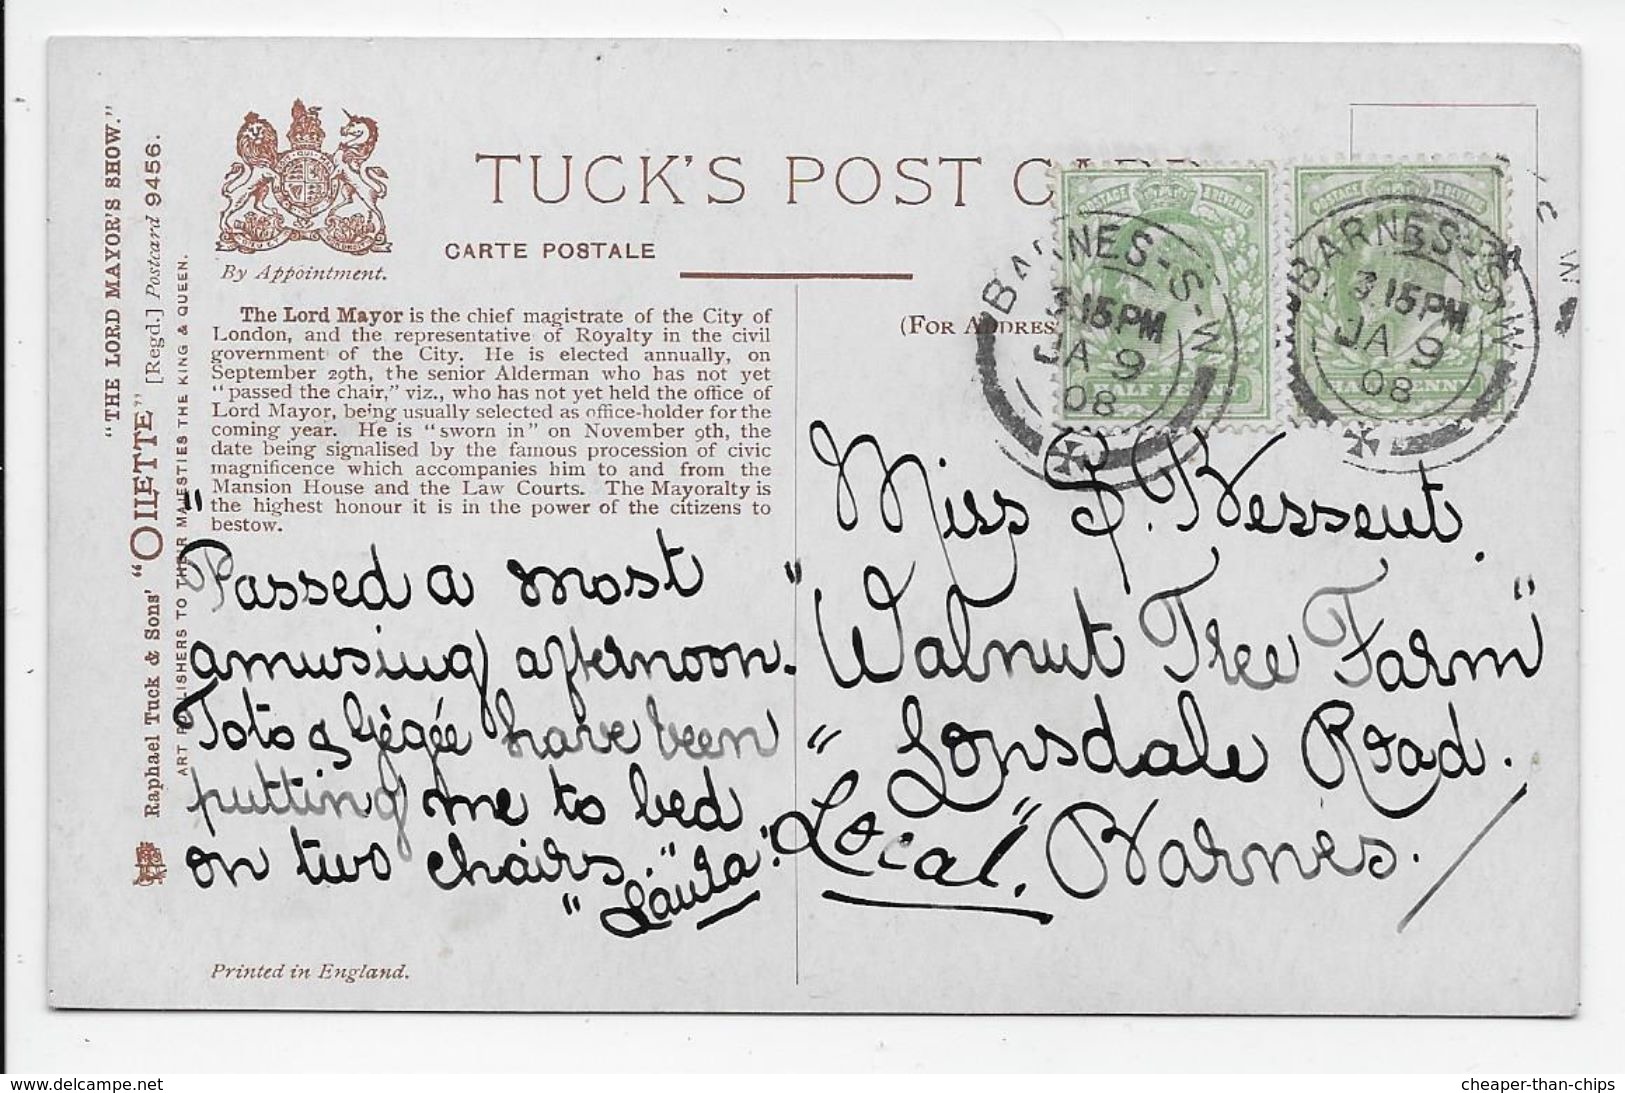 "THE LORD MAYOR'S SHOW."
Raphael Tuck & Sons' "OILETTE" [Regd.] Postcard 9456.
ART PUBLISHERS TO THEIR MAJESTIES THE KING & QUEEN.
By Appointment.
TUCK'S POST CARD
CARTE POSTALE
(FOR ADDRES
The Lord Mayor is the chief magistrate of the City of
London, and the representative of Royalty in the civil
government of the City. He is elected annually, on
September 29th, the senior Alderman who has not yet
"passed the chair," viz., who has not yet held the office of
Lord Mayor, being usually selected as office-holder for the
coming year. He is "sworn in" on November 9th, the
date being signalised by the famous procession of civic
magnificence which accompanies him to and from the
Mansion House and the Law Courts. The Mayoralty is
the highest honour it is in the power of the citizens to
bestow.
"Passed a most
amusing afternoon.
Toto & Gègée have been
putting me to bed
on two chairs."
"Laura".
POSTAGE & REVENUE
HALF PENNY
BARNES-S-W
3.15PM
JA 9
08
POSTAGE & REVENUE
HALF PENNY
BARNES-S-W
3.15PM
JA 9
08
Miss S. Bessent.
"Walnut Tree Farm"
"Lonsdale Road.
"Local." Barnes.
Printed in England.
www.delcampe.net
cheaper-than-chips